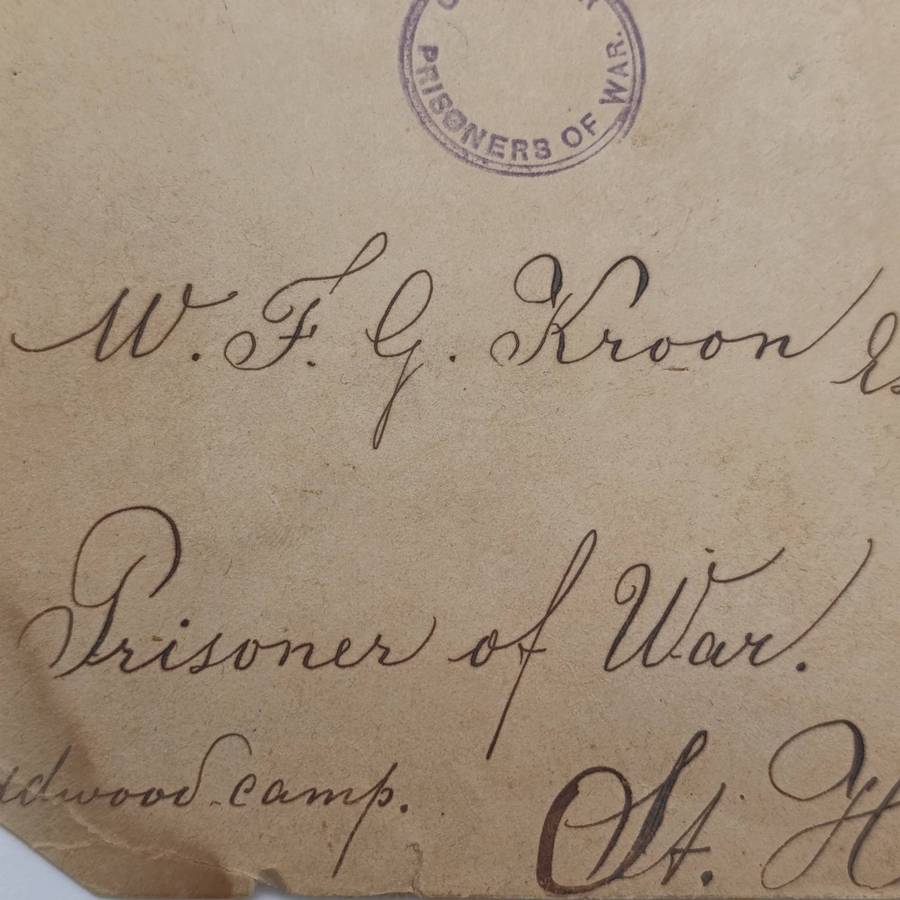 PRISONERS OF WAR.
W. F. G. Kroon
Prisoner of War.
camp.
St.